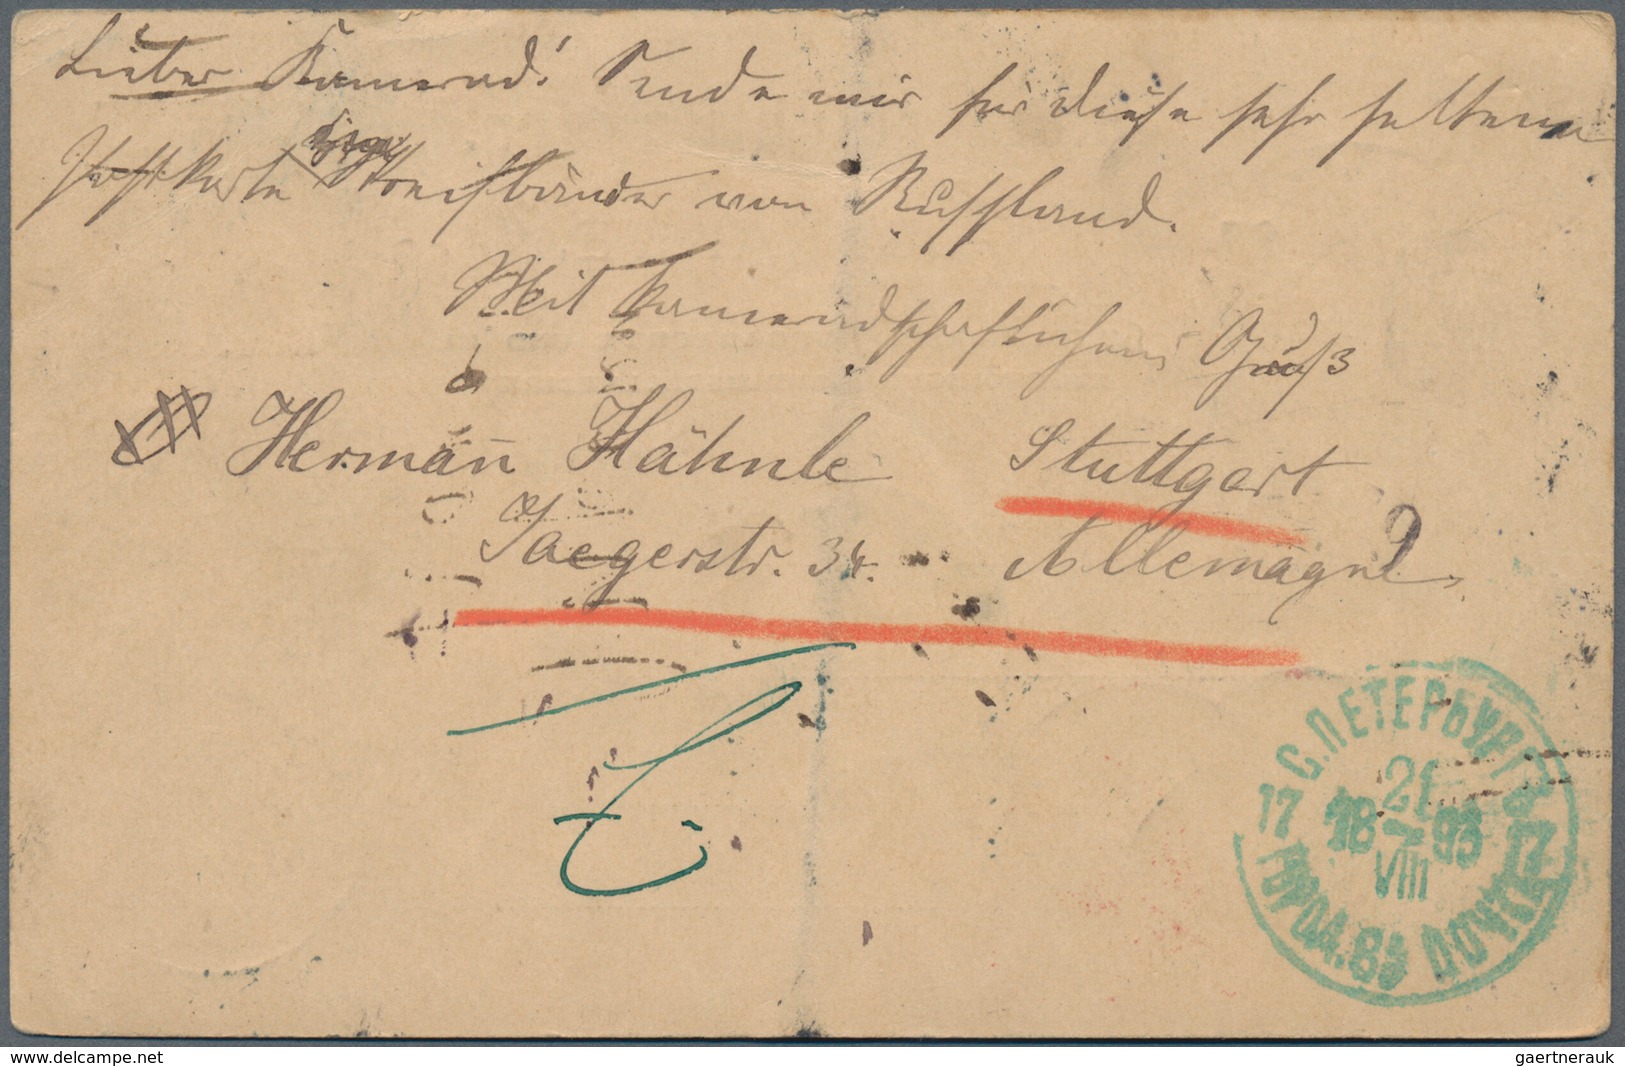 Lieber Kamerad! Sende mir für diese sehr seltene
Postkarte Streifbänder von Russland.
Mit kameradschaftlichem Gruß
Herman̄n Hähnle Stuttgart
Jaegerstr. 34. Allemagne
С.ПЕТЕРБУРГЪ
21
17 18 93 17
VIII
ГОРОД. ПОЧТА
delcampe.net
gaertnerauk